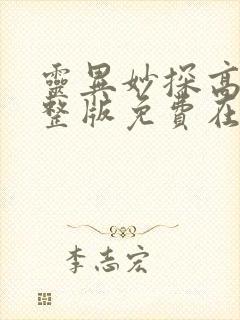 靈異妙探高
整版免費在
李志宏